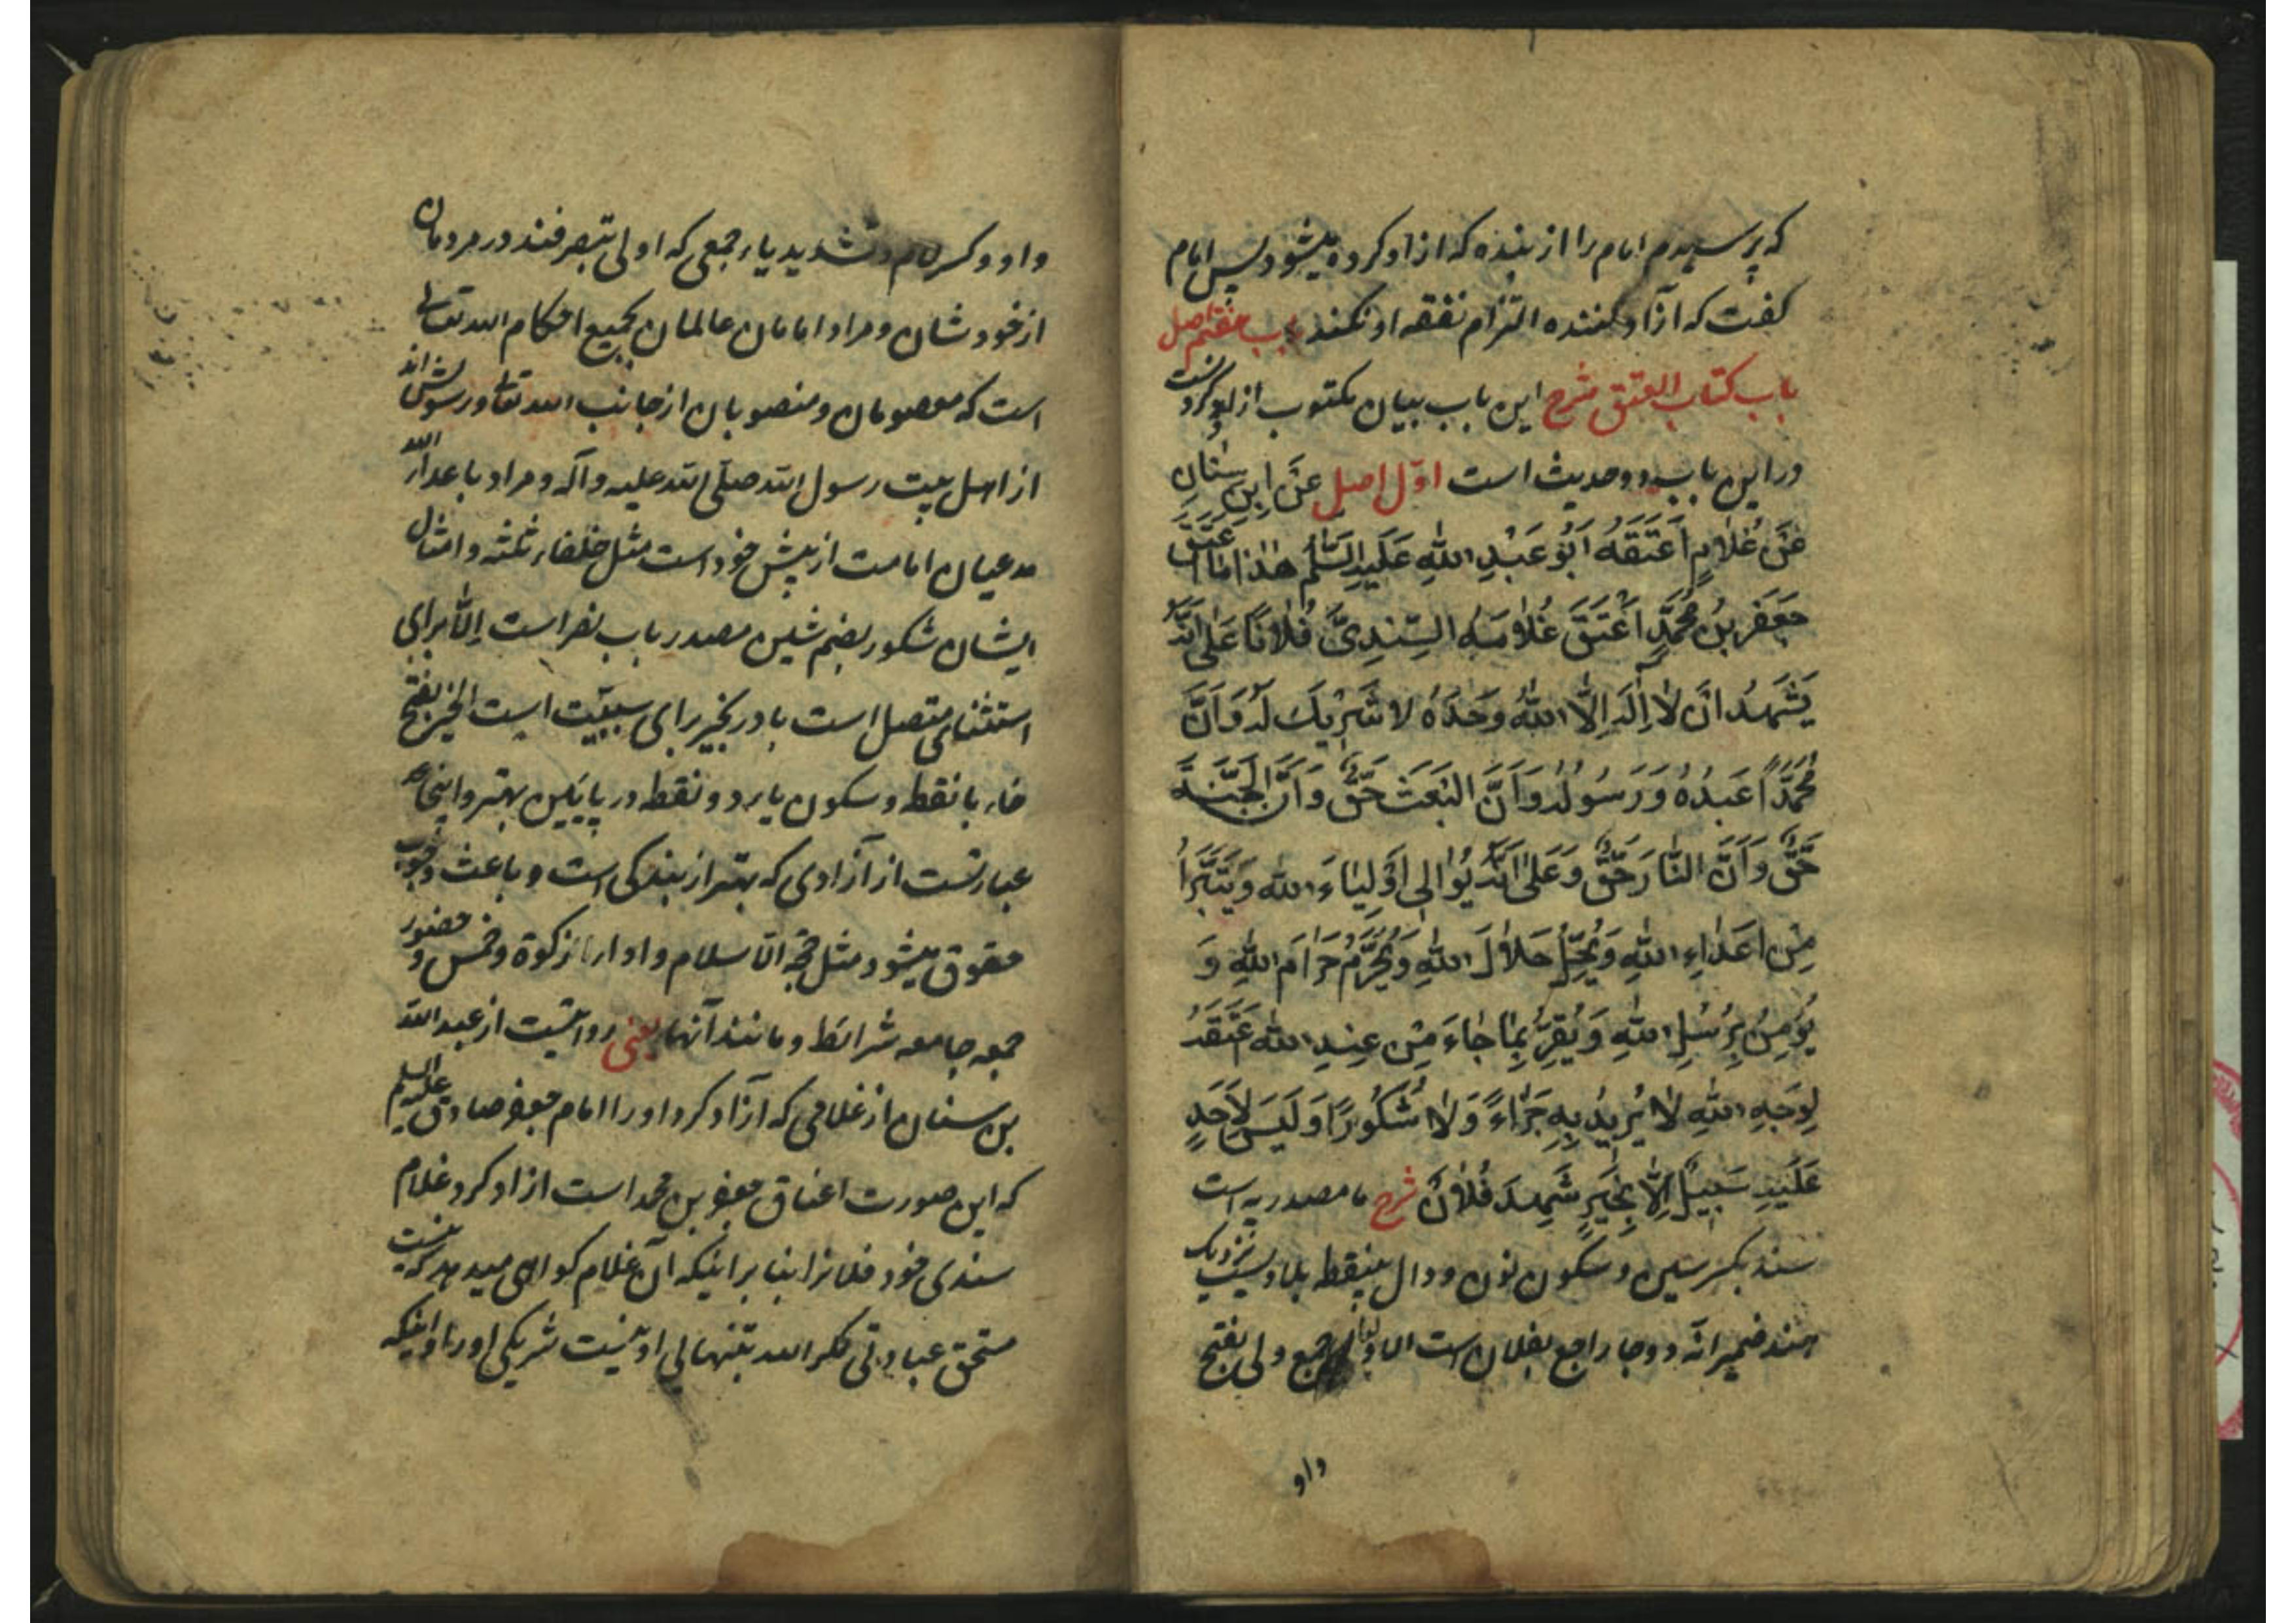 که پرسیدم امام را از بنده که ازاد کرده میشود پس امام
گفت که آزاد کننده التزام نفقه او نکند باب هفتم اصل
باب کتاب العتق شرح این باب بیان مکتوب ازاد کردنست
و در این باب دو حدیث است اوّل اصل عَنْ اِبنِ سِنٰانٍ
عَنْ غُلٰامٍ اَعْتَقَهُ اَبُو عَبْدِ اللّٰهِ عَلَیهِ السَّلٰم هٰذٰا مٰا اَعْتَقَ
جَعْفَرُ بْنُ مُحَمَّدٍ اَعْتَقَ غُلٰامَهُ السِّنْدِیَّ فُلٰانًا عَلٰی اَنَّهُ
یَشْهَدُ اَنْ لٰا اِلٰهَ اِلَّا اللّٰهُ وَحْدَهُ لٰا شَرِیکَ لَهُ وَ اَنَّ
مُحَمَّدًا عَبْدُهُ وَ رَسُولُهُ وَ اَنَّ الْبَعْثَ حَقٌّ وَ اَنَّ الْجَنَّةَ
حَقٌّ وَ اَنَّ النّٰارَ حَقٌّ وَ عَلٰی اَنَّهُ یُوٰالِی اَوْلِیٰاءَ اللّٰهِ وَ یَتَبَرَّاُ
مِنْ اَعْدٰاءِ اللّٰهِ وَ یُحِلُّ حَلٰالَ اللّٰهِ وَ یُحَرِّمُ حَرٰامَ اللّٰهِ وَ
یُؤْمِنُ بِرُسُلِ اللّٰهِ وَ یُقِرُّ بِمٰا جٰاءَ مِنْ عِنْدِ اللّٰهِ اَعْتَقَهُ
لِوَجْهِ اللّٰهِ لٰا یُرِیدُ بِهِ جَزٰاءً وَ لٰا شُکُورًا وَ لَیْسَ لِاَحَدٍ
عَلَیْهِ سَبِیلٌ اِلّٰا بِخَیْرٍ شَهِدَ فُلٰانٌ شرح ما مصدریه است
سند بکسر سین و سکون نون و دال بینقطه بلادیست نزدیک
هند ضمیر انّه دو جا راجع بفلان است اولیا جمع ولی بفتح
واو
واو و کسر لام و تشدید یاء جمعی که اولی بتصرفند در مردمان
از خودشان و مراد امامان عالمان بجمیع احکام الله تعالی
است که معصومان و منصوبان از جانب الله تعالی و رسولش اند
از اهل بیت رسول الله صلّی الله علیه و آله و مراد باعداء الله
مدعیان امامت از پیش خود است مثل خلفاء ثلثه و امثال
ایشان شکور بضم شین مصدر باب نصر است اِلّا برای
استثنای متصل است با در بخیر برای سببیّت است الخیر بفتح
خاء بانقطه و سکون یاء دو نقطه در پایین بهتر و اینجا
عبارتست از آزادی که بهتر از بندگی است و باعث وجوب
حقوق میشود مثل حجّة الاسلام و ادا زکوة و خمس و حضور
جمعه جامعه شرائط و مانند آنها یعنی روایتست از عبد الله
بن سنان از غلامی که آزاد کرد او را امام جعفر صادق علیه السلم
که این صورت اعتاق جعفر بن محمد است ازاد کرد غلام
سندی خود فلانرا بنا بر اینکه آن غلام گواهی میدهد که نیست
مستحق عبادتی مگر الله بتنهایی او نیست شریکی او را و اینکه